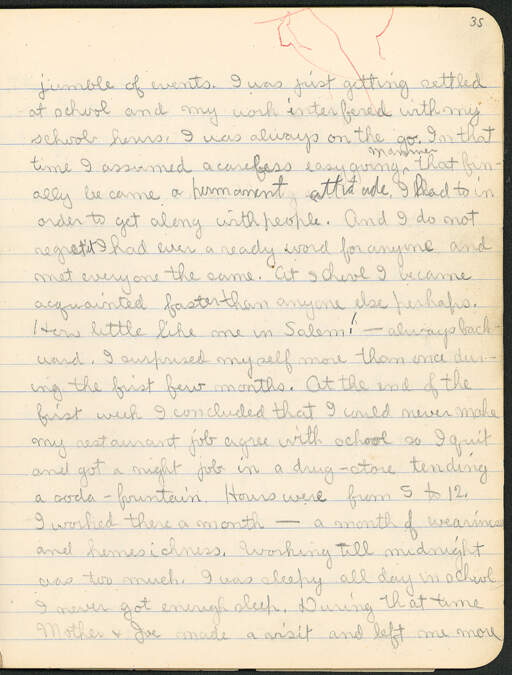 35
jumble of events. I was just getting settled
at school and my work interfered with my
school hours. I was always on the go. In that
time I assumed a careless easygoing manner that fin-
ally became a permanent attitude. I had to in
order to get along with people. And I do not
regret it I had ever a ready word for anyone and
met everyone the same. At school I became
acquainted faster than anyone else perhaps.
How little like me in Salem! — always back-
ward. I surprised myself more than once dur-
ing the first few months. At the end of the
first week I concluded that I could never make
my restaurant job agree with school so I quit
and got a night job in a drug-store tending
a soda-fountain. Hours were from 5 to 12.
I worked there a month — a month of weariness
and homesickness. Working till midnight
was too much. I was sleepy all day in school
I never got enough sleep. During that time
Mother & Joe made a visit and left me more